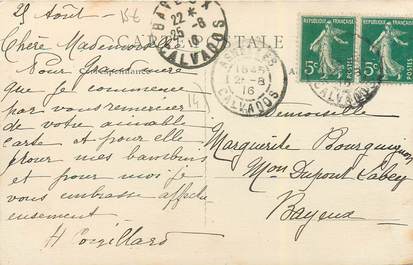 29 Août
Chère Mademoiselle
Pour Grand'mère
que je commence
par vous remercier
de votre aimable
carte et pour elle
pour mes bambins
et pour moi je
vous embrasse affectu
eusement
CARTE POSTALE
BAYEUX
22 *
25-8
16
CALVADOS
18
21-8
16
CALVADOS
RÉPUBLIQUE FRANÇAISE
5c
POSTES
RÉPUBLIQUE FRANÇAISE
5c
POSTES
Demoiselle
Marguerite Bourguignon
Mon Dupont Labey
Bayeux